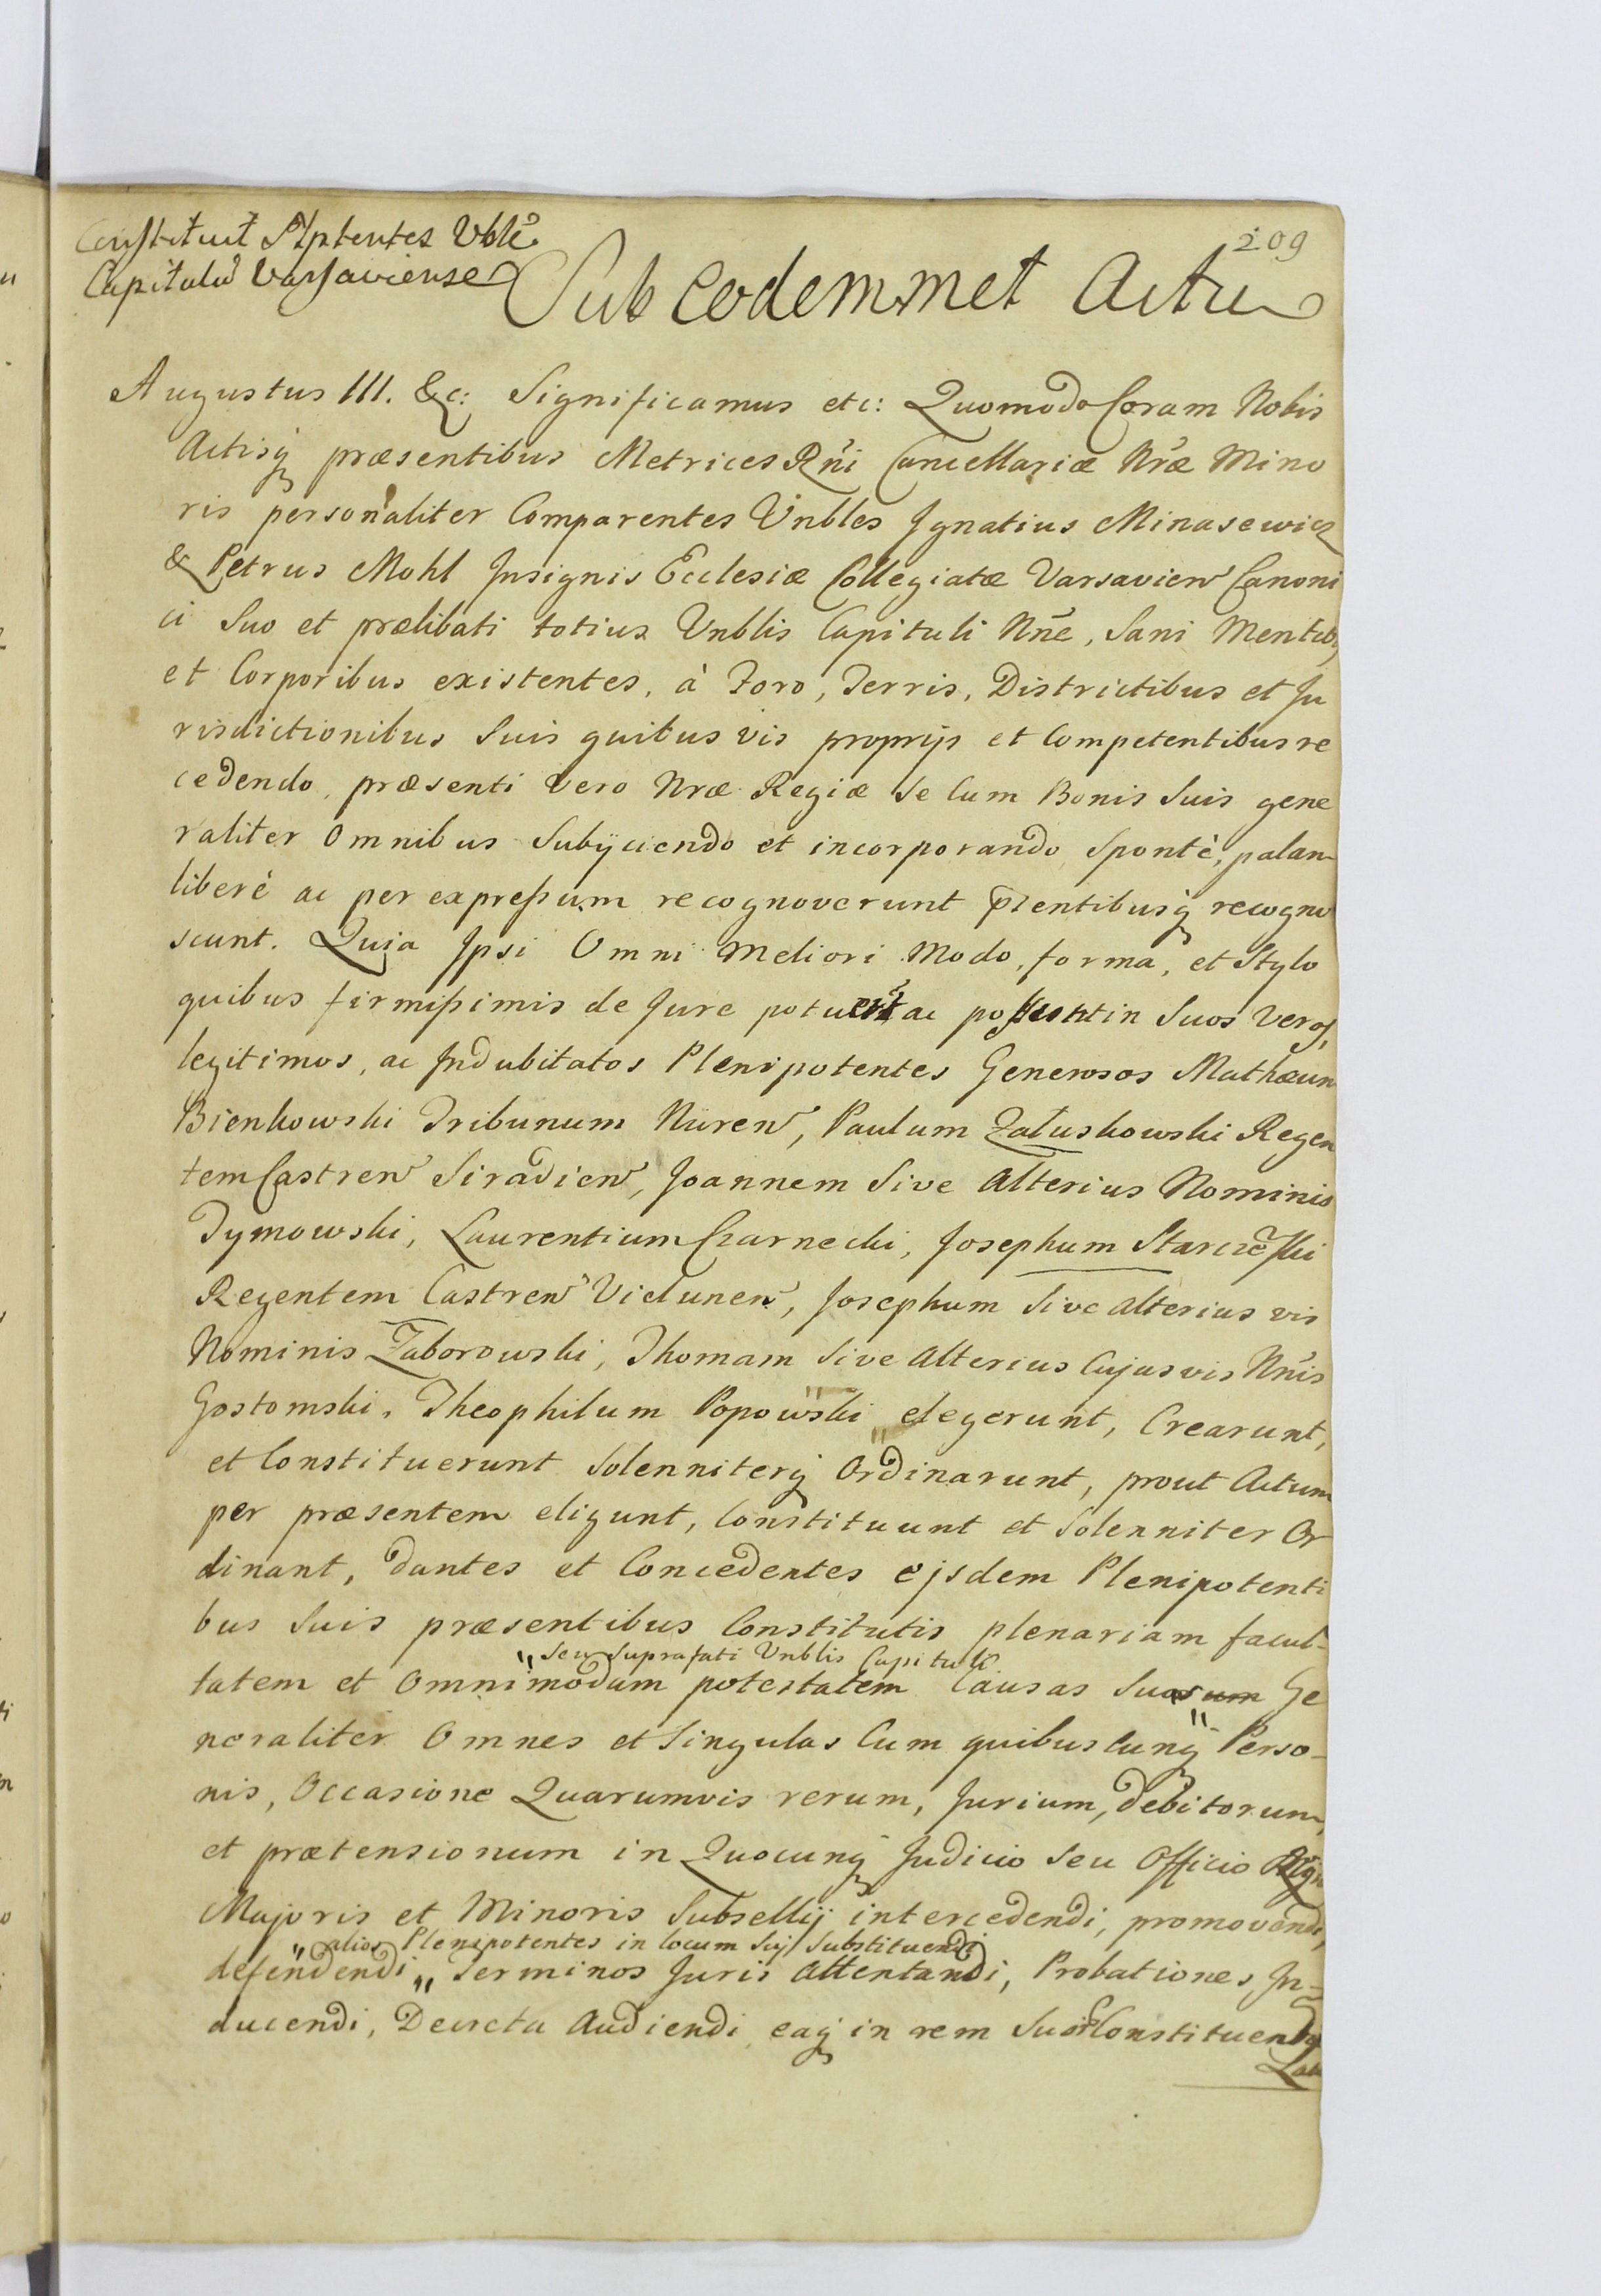 209
Constituit Plptentes Vble
Capitulũ Varsaviense
Sub eodemmet Actu
Augustus III. &c: Significamus etc: Quomodo Coram Nobis
Actisq præsentibus Metrices Rñi Cancellariæ Nræ Mino
ris personaliter Comparentes Vnbles Ignatius Minasewicz
& Petrus Mohl Insignis Ecclesiæ Collegiatæ Varsavien Canoni
ci Suo et prælibati totius Vnblis Capituli Nñe, Sani Mentib,
et Corporibus existentes, à Foro, Terris, Districtibus et Ju
risdictionibus Suis quibus vis proprijs et Competentibus re
cedendo, præsenti vero Nræ Regiæ Se Cum Bonis Suis gene
raliter Omnibus Subijciendo et incorporando Spontè, palam
liberè ac per expressum recognoverunt prentibusq recogno
scunt. Quia Ipsi Omni Meliori Modo, forma, et Stylo
quibus firmissimis de Jure potuert ac possunt in Suos Veros,
legitimos, ac Indubitatos Plenipotentes Generosos Mathæum
Bienkowski Tribunum Nuren, Paulum Załuskowski Regen
tem Castren Siradien, Joannem Sive Alterius Nominis
Dymowski, Laurentium Czarnecki, Josephum Starczeski
Regentem Castren Vielunen, Josephum Sive alterius vis
Nominis Zaborowski, Thomam Sive Alterius Cujasvis Nñis
Gostomski, Theophilum Popowski " elegerunt, Crearunt,
et Constituerunt Solenniterq Ordinarunt, prout Actum
per præsentem eligunt, Constituunt et Solenniter Or
dinant, dantes et Concedentes ejsdem Plenipotenti
bus Suis præsentibus Constitutis plenariam facul-
" Seu Suprafati Vnblis Capituli
tatem et Omnimodam potestatem Causas Suas Ge
neraliter Omnes et Singulas Cum quibuscunq Perso-
nis, Occasione Quarumvis rerum, Jurium, debitorum,
et prætensionum in Quocunq Judicio Seu Officio Regn
Majoris et Minoris Subsellij intercedendi, promovendi,
" alios Plenipotentes in locum Sui Substituendi
defendendi " Terminos Juris Attentandi, Probationes In-
ducendi, Decreta Audiendi eaq in rem Suor Constituentiu
Lau